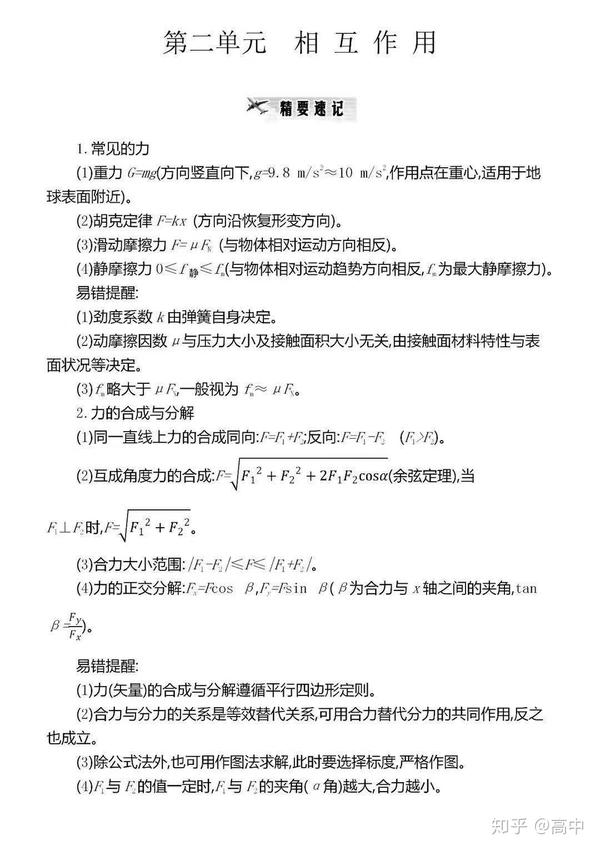 第二单元 相互作用
精要速记
1.常见的力
(1)重力 G=mg(方向竖直向下,g=9.8 m/s²≈10 m/s²,作用点在重心,适用于地
球表面附近)。
(2)胡克定律 F=kx (方向沿恢复形变方向)。
(3)滑动摩擦力 F=μFN (与物体相对运动方向相反)。
(4)静摩擦力 0≤f静≤fm(与物体相对运动趋势方向相反,fm为最大静摩擦力)。
易错提醒:
(1)劲度系数 k 由弹簧自身决定。
(2)动摩擦因数 μ 与压力大小及接触面积大小无关,由接触面材料特性与表
面状况等决定。
(3)fm略大于 μFN,一般视为 fm≈ μFN。
2.力的合成与分解
(1)同一直线上力的合成同向:F=F₁+F₂;反向:F=F₁-F₂ (F₁>F₂)。
(2)互成角度力的合成:F=√(F₁²+F₂²+2F₁F₂cosα)(余弦定理),当
F₁⊥F₂时,F=√(F₁²+F₂²)。
(3)合力大小范围:|F₁-F₂|≤F≤|F₁+F₂|。
(4)力的正交分解:Fx=Fcos β,Fy=Fsin β(β为合力与 x 轴之间的夹角,tan
β=Fy/Fx)。
易错提醒:
(1)力(矢量)的合成与分解遵循平行四边形定则。
(2)合力与分力的关系是等效替代关系,可用合力替代分力的共同作用,反之
也成立。
(3)除公式法外,也可用作图法求解,此时要选择标度,严格作图。
(4)F₁与 F₂的值一定时,F₁与 F₂的夹角(α角)越大,合力越小。
知乎 @高中